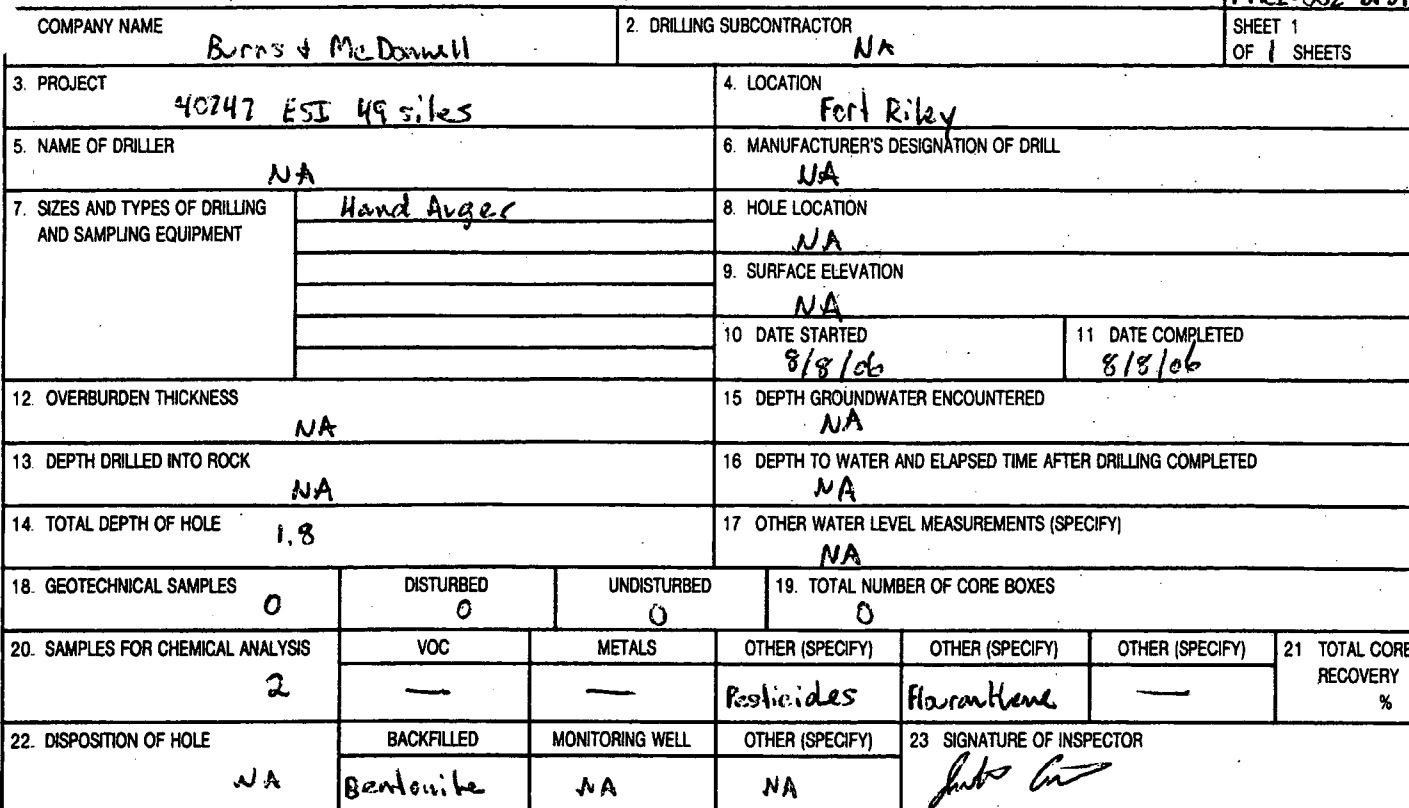 COMPANY NAME
Burns & McDonnell
2. DRILLING SUBCONTRACTOR
NA
SHEET 1
OF 1 SHEETS
3. PROJECT
40247 ESI 49 sites
4. LOCATION
Fort Riley
5. NAME OF DRILLER
NA
6. MANUFACTURER'S DESIGNATION OF DRILL
NA
7. SIZES AND TYPES OF DRILLING
AND SAMPLING EQUIPMENT
Hand Auger
8. HOLE LOCATION
NA
9. SURFACE ELEVATION
NA
10 DATE STARTED
8/8/06
11 DATE COMPLETED
8/8/06
12. OVERBURDEN THICKNESS
NA
15 DEPTH GROUNDWATER ENCOUNTERED
NA
13. DEPTH DRILLED INTO ROCK
NA
16 DEPTH TO WATER AND ELAPSED TIME AFTER DRILLING COMPLETED
NA
14. TOTAL DEPTH OF HOLE 1.8
17 OTHER WATER LEVEL MEASUREMENTS (SPECIFY)
NA
18. GEOTECHNICAL SAMPLES
0
DISTURBED
0
UNDISTURBED
0
19. TOTAL NUMBER OF CORE BOXES
0
20. SAMPLES FOR CHEMICAL ANALYSIS
2
VOC
—
METALS
—
OTHER (SPECIFY)
Pesticides
OTHER (SPECIFY)
Flouranthene
OTHER (SPECIFY)
—
21 TOTAL CORE
RECOVERY
%
22. DISPOSITION OF HOLE
NA
BACKFILLED
Bentonite
MONITORING WELL
NA
OTHER (SPECIFY)
NA
23 SIGNATURE OF INSPECTOR